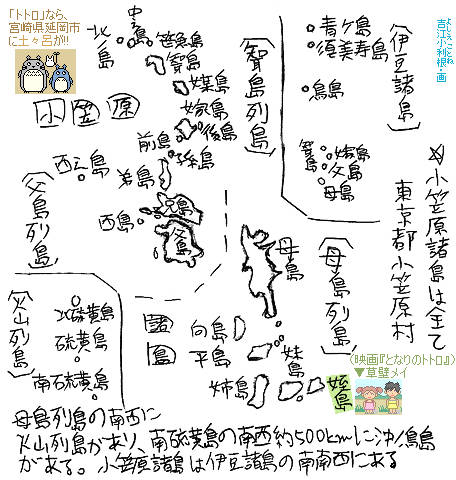 「トトロ」なら、
宮崎県延岡市
に土々呂が!!
北ノ島
中ノ島
笹魚島
聟島
媒島
嫁島
前島
後島
〔聟島列島〕
小笠原
諸島
青ヶ島
須美寿島
鳥島
〔伊豆諸島〕
聟島
嫁島
父島
母島
吉江小利根・画
☆小笠原諸島は全て
東京都小笠原村
西之島
弟島
兄島
父島
西島
〔父島列島〕
母島
〔母島列島〕
向島
平島
姉島
妹島
姪島
〈映画『となりのトトロ』〉
▼草壁メイ
〔火山列島〕
北硫黄島
硫黄島
南硫黄島
母島列島の南西に
火山列島があり、南硫黄島の南西約500kmに沖ノ鳥島
がある。小笠原諸島は伊豆諸島の南南西にある